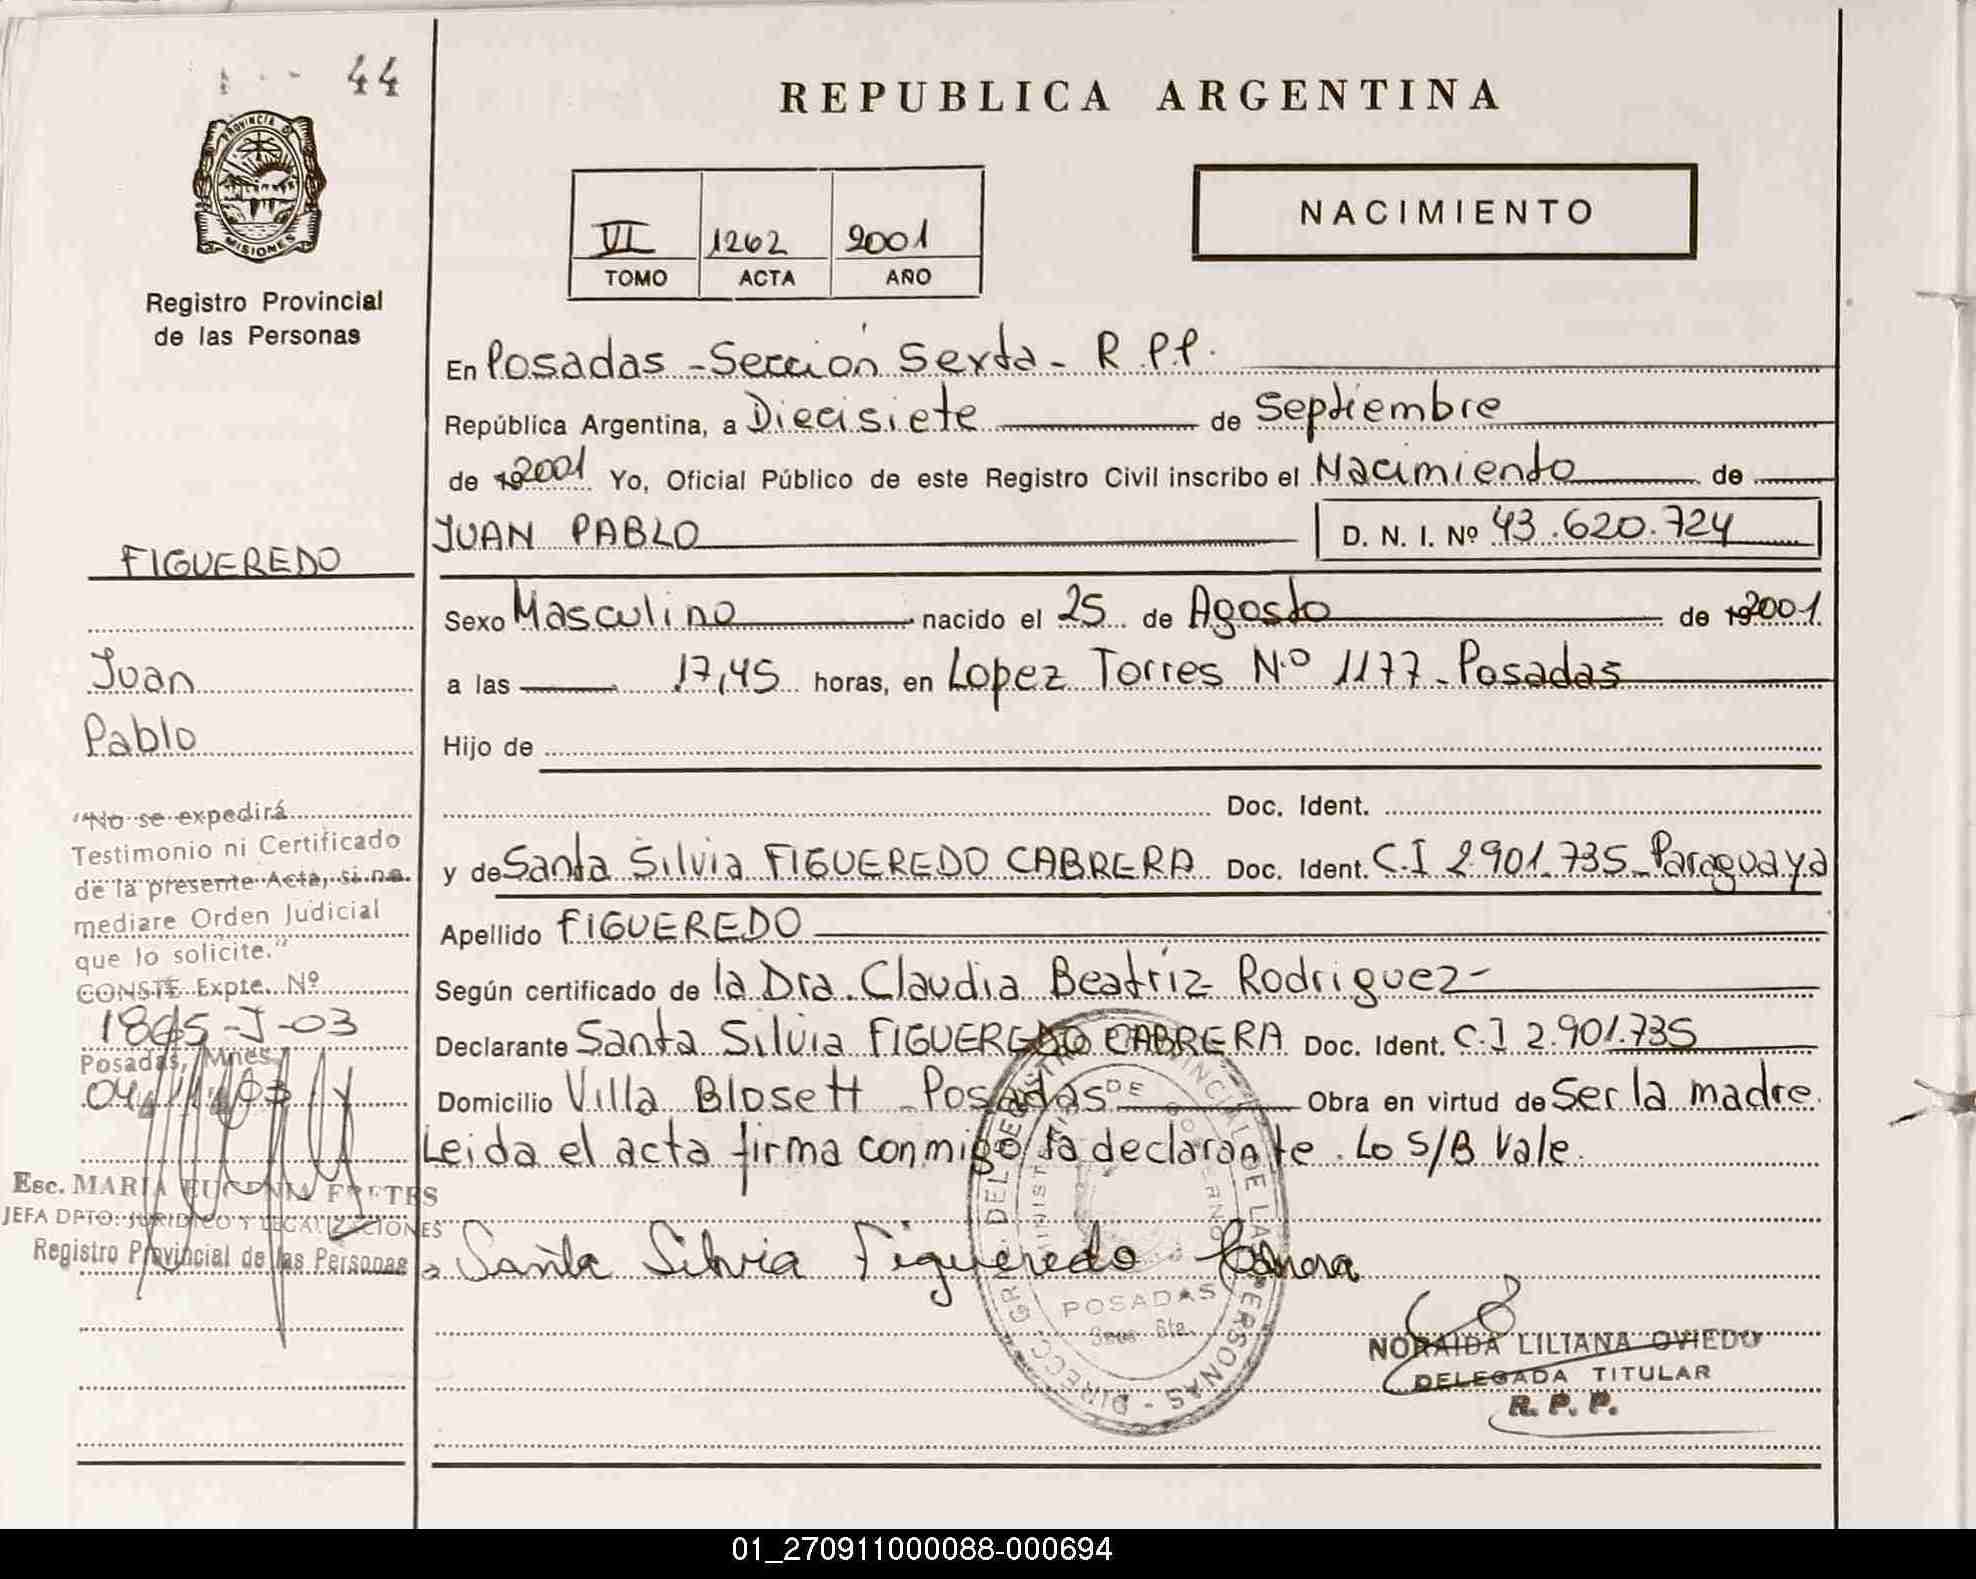 44
PROVINCIA DE
MISIONES
Registro Provincial
de las Personas
FIGUEREDO
Juan
Pablo
"No se expedirá
Testimonio ni Certificado
de la presente Acta, si no
mediare Orden Judicial
que lo solicite."
CONSTE Expte. Nº
1865-J-03
Posadas, Mnes
04/11/03
Esc. MARIA EUGENIA FRETES
JEFA DPTO. JURIDICO Y LEGALIZACIONES
Registro Provincial de las Personas
REPUBLICA ARGENTINA
VI 1262 2001
TOMO ACTA AÑO
NACIMIENTO
En Posadas - Sección Sexta - R.P.P.
República Argentina, a Diecisiete de Septiembre
de 192001 Yo, Oficial Público de este Registro Civil inscribo el Nacimiento de
JUAN PABLO D. N. I. Nº 43.620.724
Sexo Masculino nacido el 25 de Agosto de 192001.
a las 17,45 horas, en Lopez Torres Nº 1177 - Posadas
Hijo de
Doc. Ident.
y de Santa Silvia FIGUEREDO CABRERA Doc. Ident. C.I 2.901.735 - Paraguaya
Apellido FIGUEREDO
Según certificado de la Dra. Claudia Beatriz Rodriguez -
Declarante Santa Silvia FIGUEREDO CABRERA Doc. Ident. C.I 2.901.735
Domicilio Villa Blosett - Posadas Obra en virtud de Ser la madre.
Leida el acta firma conmigo la declarante. Lo S/B Vale.
Santa Silvia Figueredo
POSADAS
Secc. 6ta.
NORAIDA LILIANA OVIEDO
DELEGADA TITULAR
R. P. P.
01_270911000088-000694